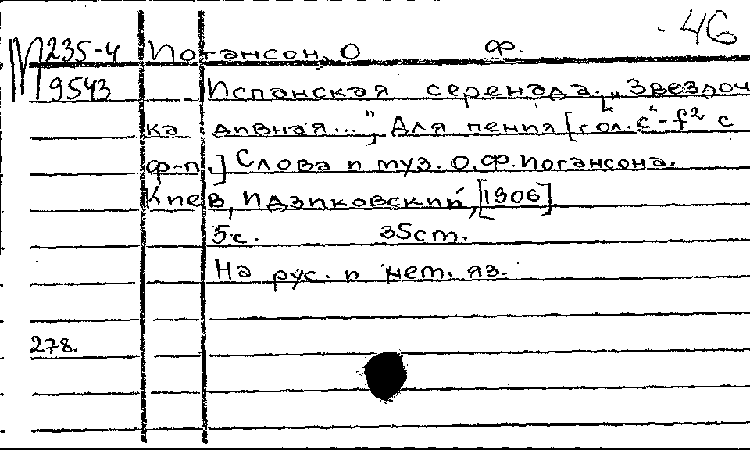 46
М 235-4 Иогансон, О. Ф.
9543 Испанская серенада. "Звездоч
ка дивная...", Для пения [гол. c¹-f² с
ф-п.] Слова и муз. О.Ф. Иогансона.
Киев, Идзиковский, [1906]
5с. 35cm.
На рус. и нем. яз.
278.